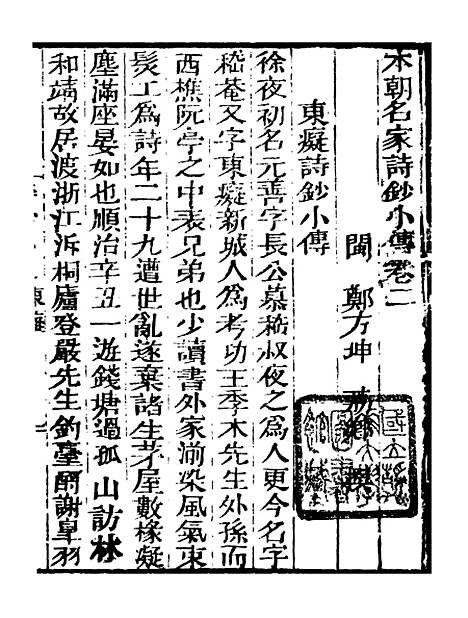 本朝名家詩鈔小傳卷二
閩 鄭方坤 荔鄉 撰
東癡詩鈔小傳
徐夜初名元善字長公慕嵇叔夜之爲人更今名字
嵇菴又字東癡新城人爲考功王季木先生外孫而
西樵阮亭之中表兄弟也少讀書外家湔染風氣束
髮工爲詩年二十九遭世亂遂棄諸生茅屋數椽凝
塵滿座晏如也順治辛丑一遊錢塘過孤山訪林
和靖故居渡浙江泝桐廬登嚴先生釣臺酹謝皐羽